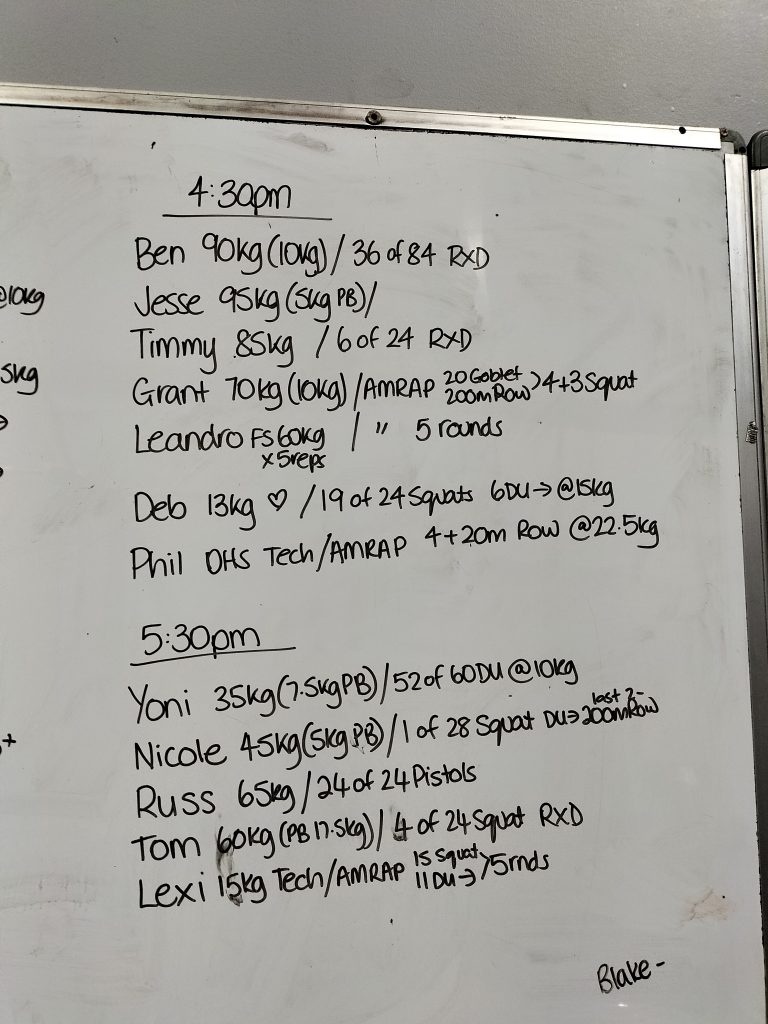 4:30pm
Ben 90kg (10kg) / 36 of 84 RXD
Jesse 95kg (5kg PB) /
Timmy 85kg / 6 of 24 RXD
Grant 70kg (10kg) / AMRAP 20 Goblet 200m Row > 4+3 Squat
Leandro FS 60kg / " 5 rounds
x5reps
Deb 13kg ♡ / 19 of 24 Squats 6DU → @15kg
Phil OHS Tech / AMRAP 4+20m Row @22.5kg
5:30pm
Yoni 35kg (7.5kg PB) / 52 of 60DU @10kg
Nicole 45kg (5kg PB) / 1 of 28 Squat DU → last 2- 200m Row
Russ 65kg / 24 of 24 Pistols
Tom 60kg (PB 17.5kg) / 4 of 24 Squat RXD
Lexi 15kg Tech / AMRAP 15 Squat 11 DU → > 5rnds
Blake -
@10kg
5kg
+